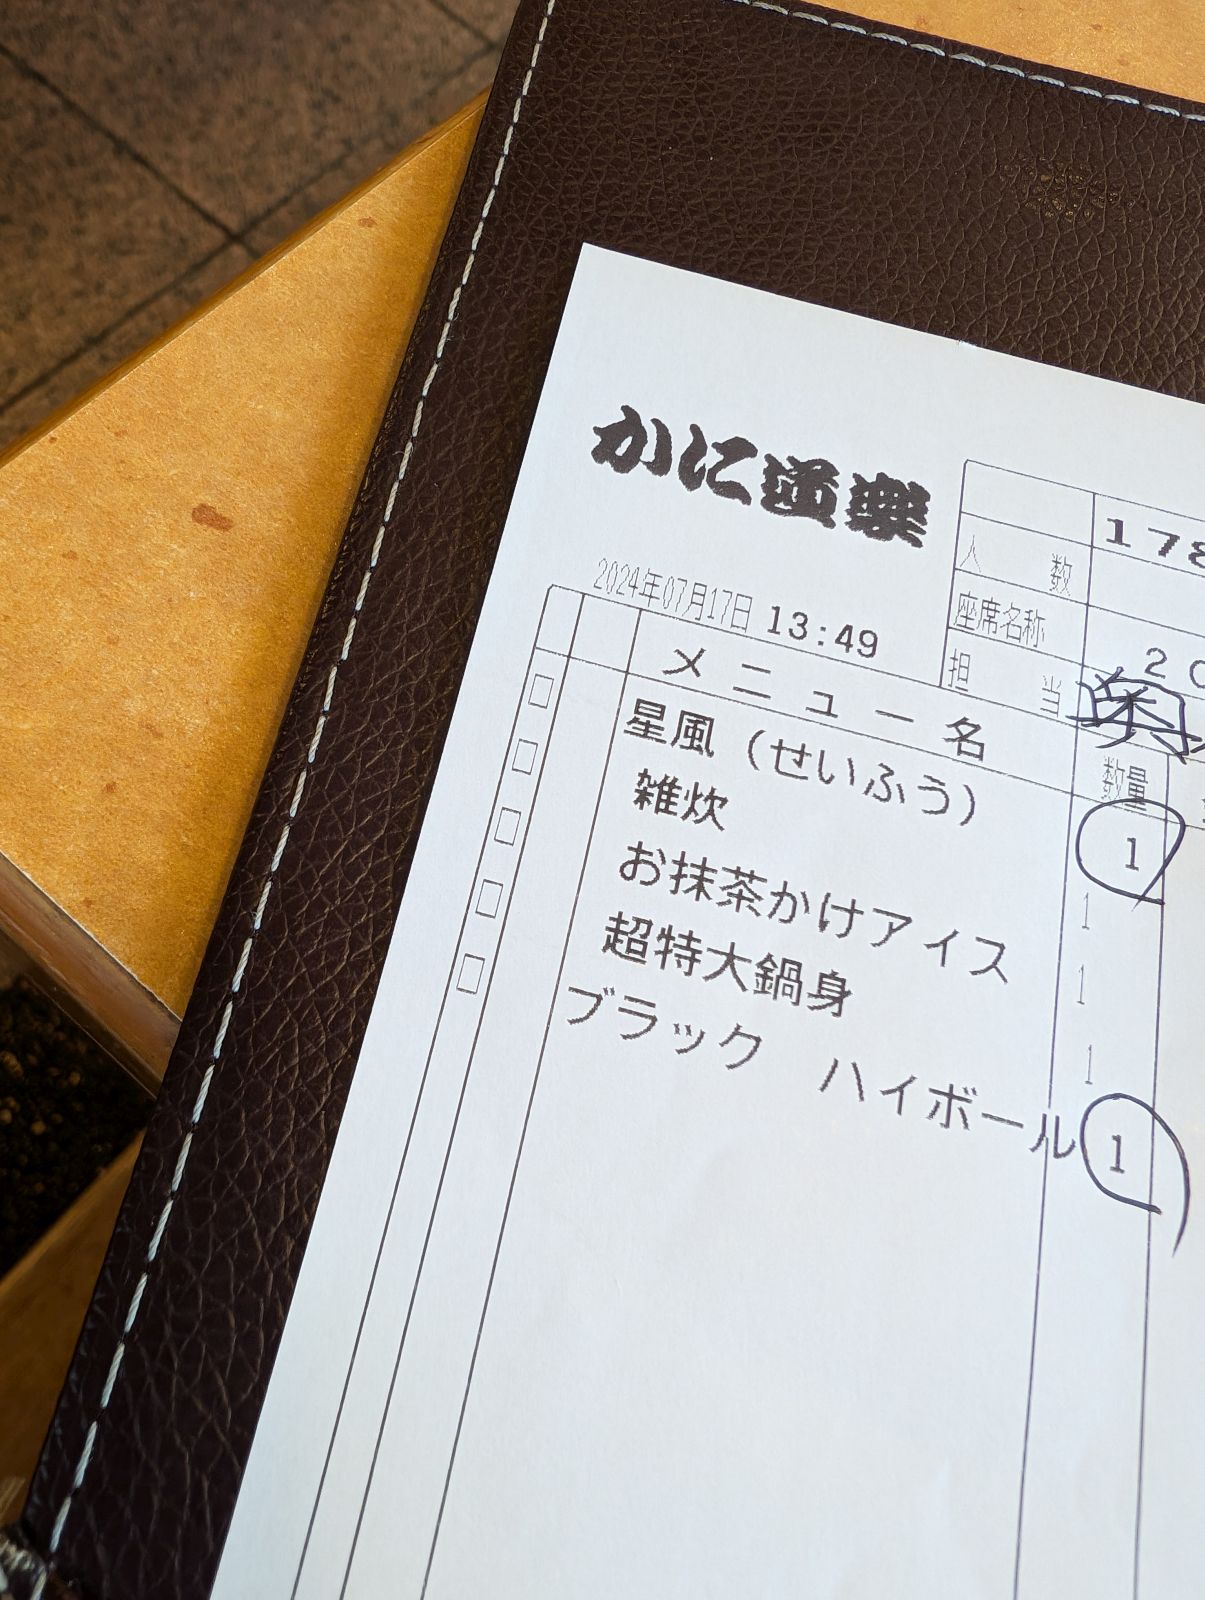 かに道楽
178
人数
座席名称
20
担当
2024年07月17日 13:49
メニュー名 数量
星風（せいふう） 1
雑炊 1
お抹茶かけアイス 1
超特大鍋身 1
ブラック ハイボール 1